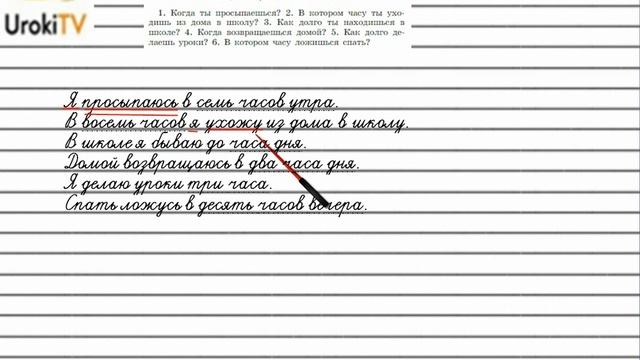 UrokiTV
1. Когда ты просыпаешься? 2. В котором часу ты ухо-
дишь из дома в школу? 3. Как долго ты находишься в
школе? 4. Когда возвращаешься домой? 5. Как долго де-
лаешь уроки? 6. В котором часу ложишься спать?
Я просыпаюсь в семь часов утра.
В восемь часов я ухожу из дома в школу.
В школе я бываю до часа дня.
Домой возвращаюсь в два часа дня.
Я делаю уроки три часа.
Спать ложусь в десять часов вечера.